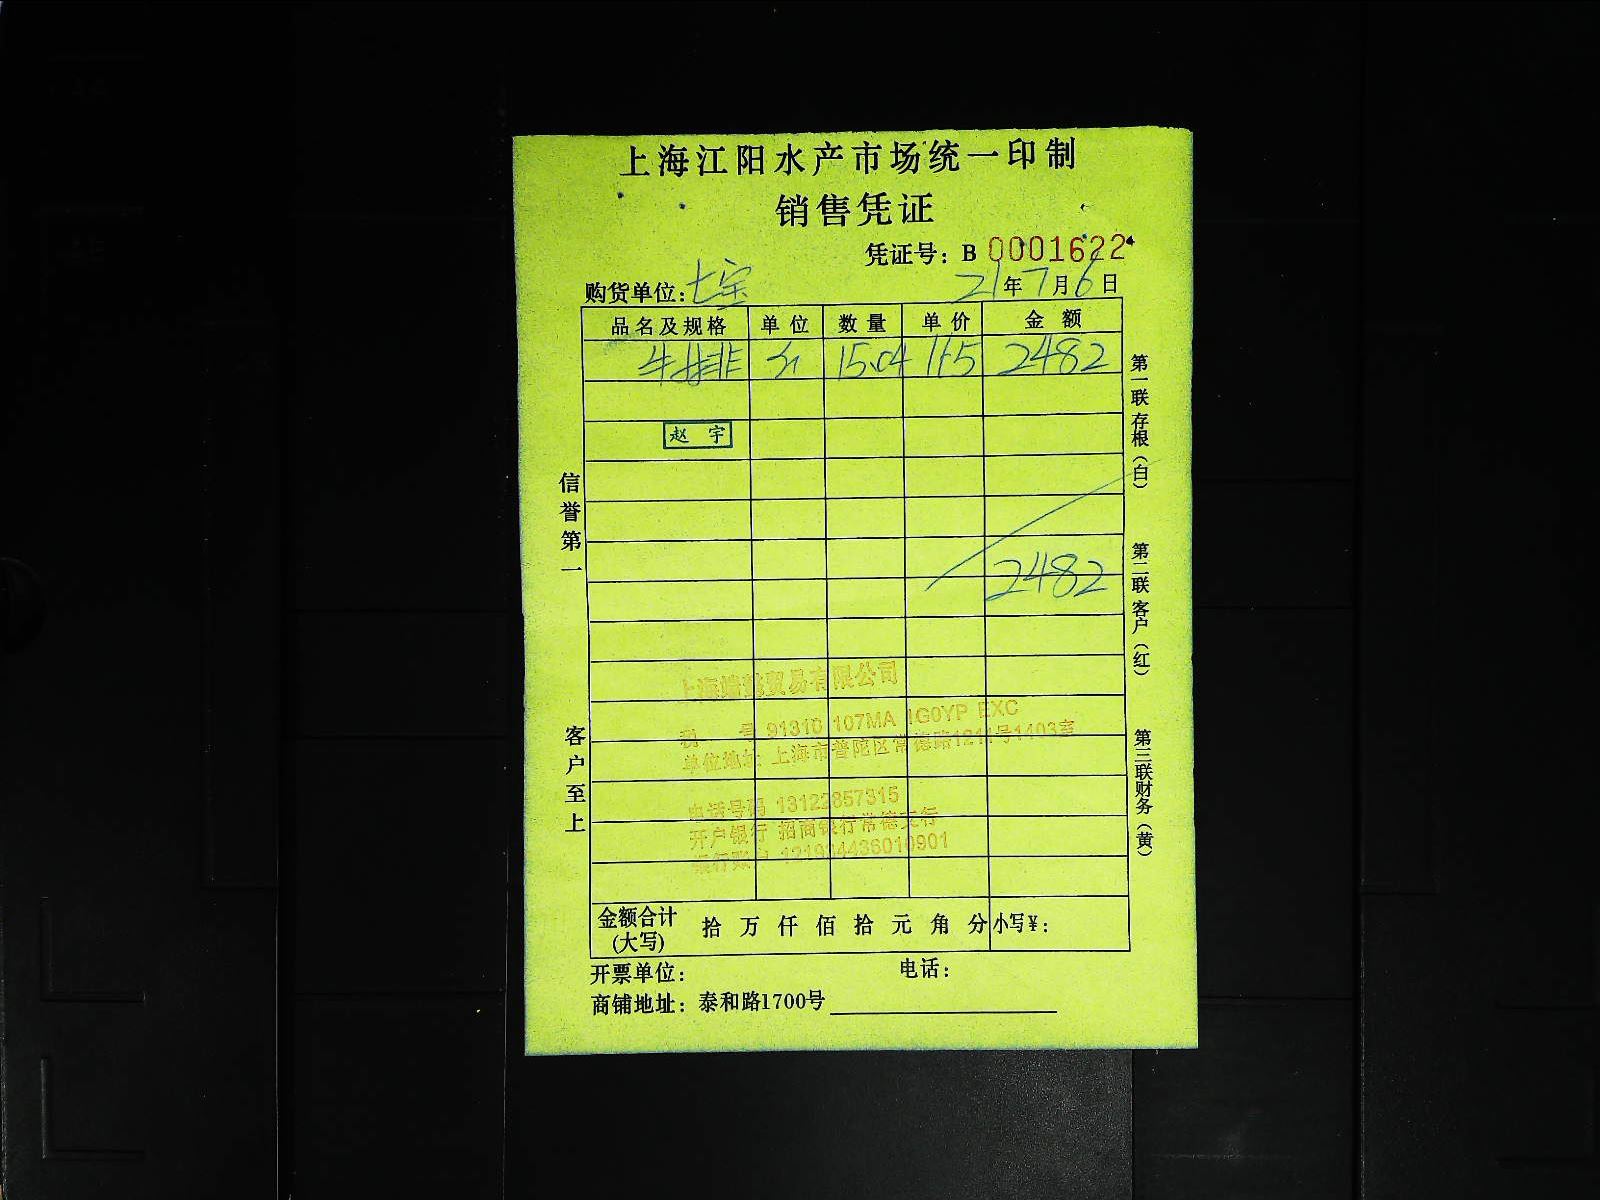 上海江阳水产市场统一印制
销售凭证
凭证号：B 0001622
购货单位：七宝 21年7月6日
品名及规格 单位 数量 单价 金额
牛排 15.04 2482
赵宇
2482
信誉第一
客户至上
第一联存根（白）
第二联客户（红）
第三联财务（黄）
上海 贸易有限公司
税 号 91310 107MA 1G0YP EXC
单位地址 上海市普陀区常德路1211号1403室
电话号码 13122857315
开户银行 招商银行常德支行
银行账户 121934436010901
金额合计（大写） 拾 万 仟 佰 拾 元 角 分 小写¥：
开票单位： 电话：
商铺地址：泰和路1700号